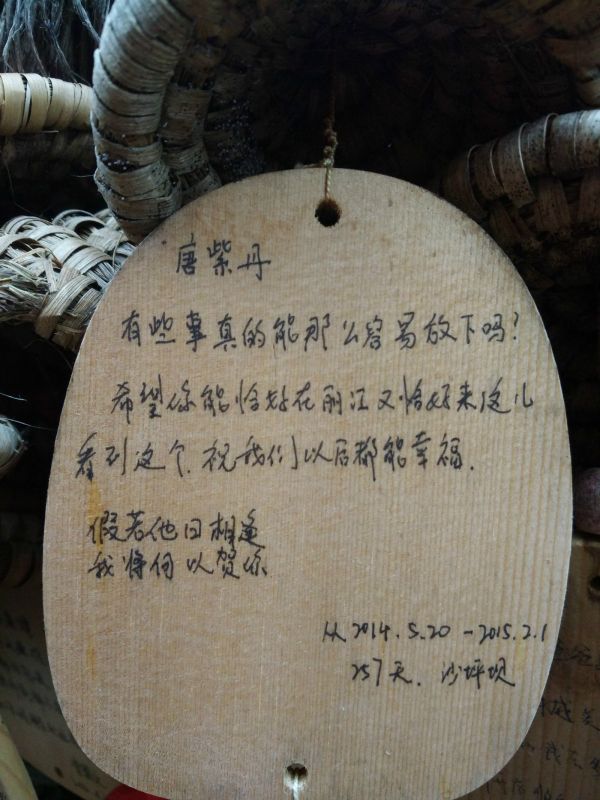 唐紫丹
有些事真的能那么容易放下吗?
希望你能恰好在丽江又恰好来这儿
看到这个.祝我们以后都能幸福.
假若他日相逢
我将何以贺你
从2014.5.20-2015.2.1
257天.沙坪坝